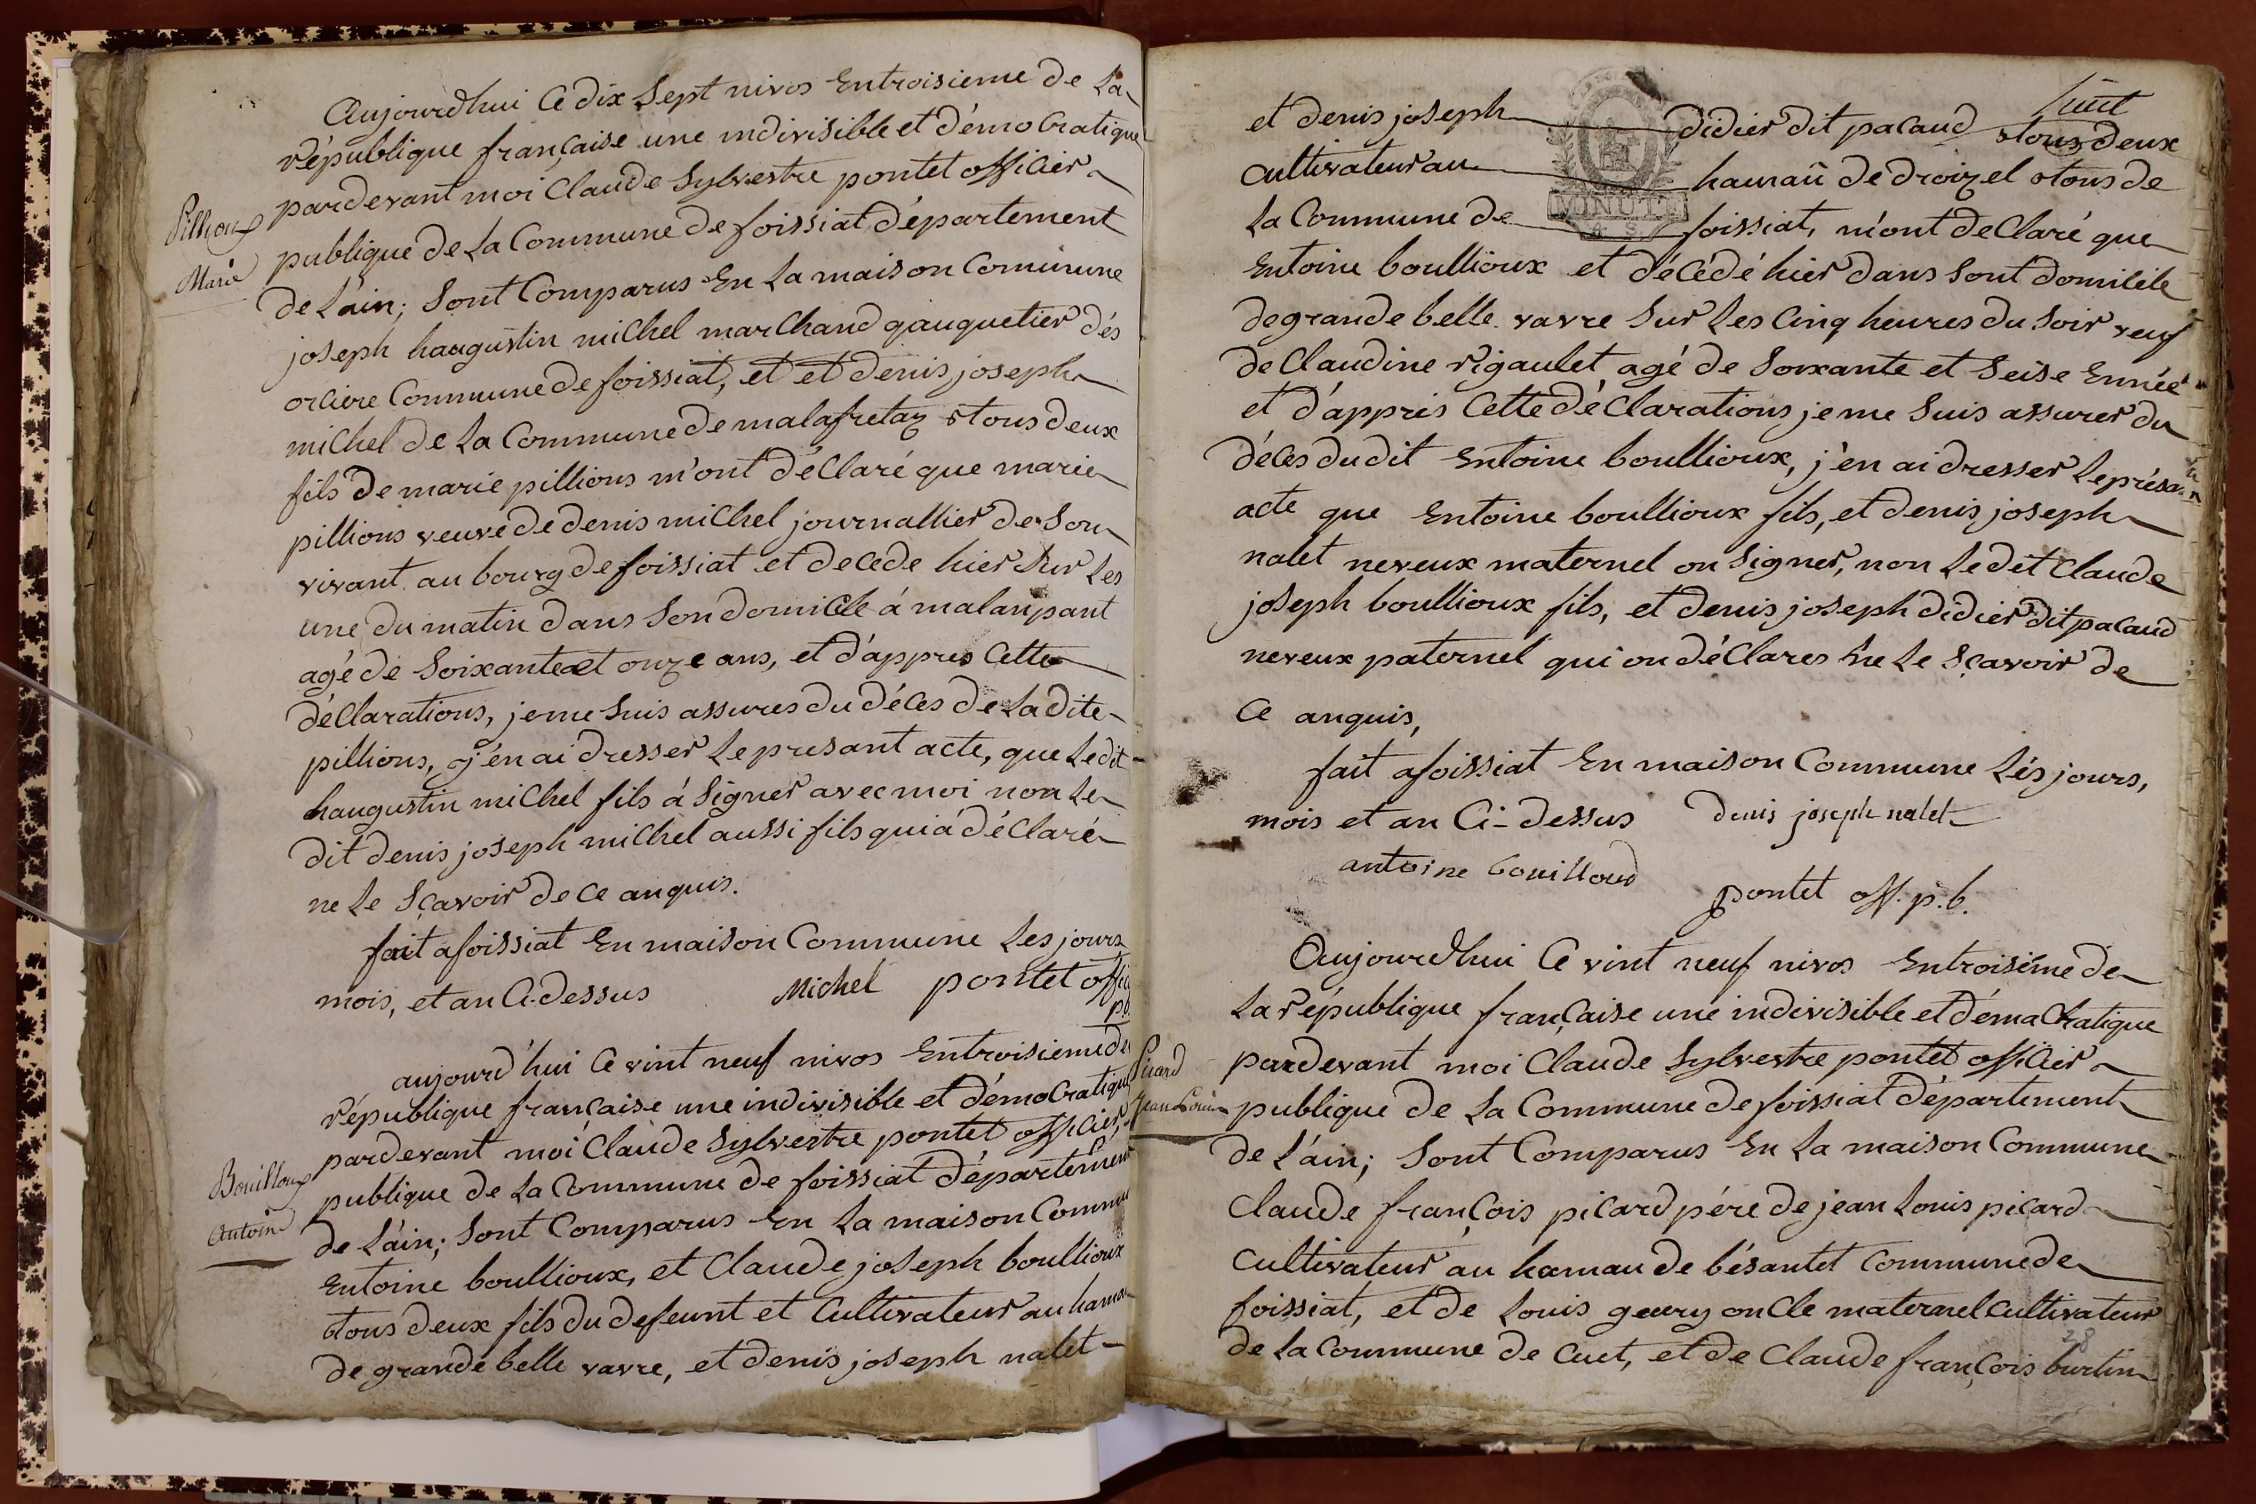 Pillion
Marie
Aujourdhui Ce dix Sept nivos Entroisieme de La
république française une indivisible et démocratique
pardevant moi Claude Sylvestre pontet officier
publique de La Commune de foissiat département
de L'ain; Sont Comparus En La maison Commune
joseph haugustin michel marchand gauquetier dés
orciere Commune de foissiat, et et denis joseph
michel de La Commune de malafretaz tous deux
fils de marie pillions m'ont déclaré que marie
pillions veuve de denis michel journallier de Son
vivant au bourg de foissiat et decede hier Sur Les
une du matin dans Son domicile à malanpant
agé de Soixante et onze ans, et d'appres Cette
déClarations, je me Suis assures du décès de Ladite
pillions, j'en ai dresser Le presant acte, que Ledit
haugustin michel fils à Signer avec moi non Le
dit denis joseph michel aussi fils qui à déClaré
ne Le Sçavoir de Ce anquis.
fait afoissiat En maison Commune Les jours
mois, et an Ci-dessus Michel pontet offici
p.b.
Bouilloux
Antoine
aujourd'hui Ce vint neuf nivos Entroisieme de
république française une indivisible et démocratique
pardevant moi Claude Sylvestre pontet officier
publique de La Commune de foissiat département
de L'ain; Sont Comparus En La maison Commu
Entoine boullioux, et Claude joseph boullioux
tous deux fils du defeunt et Cultivateur au hamau
de grande belle vavre, et denis joseph nalet
huit
et denis joseph didier dit pacaud tous deux
Cultivateur au hamaû de droizel tous de
La Commune de foissiat, m'ont declaré que
MINUTE
Entoine boullioux et décédé hier dans Sont domicile
de grande belle vavre Sur Les Cinq heures du Soir veuf
de Claudine rigaulet agé de Soixante et Seise Ennée
et d'appris Cette déClarations je me Suis assurer du
déces dudit Entoine boullioux, j'en ai dresser Le présa
acte que Entoine boullioux fils, et denis joseph
nalet neveux maternel on Signer, non Ledit Claude
joseph boullioux fils, et denis joseph didier dit pacaud
neveux paternel qui on déClares ne Le Sçavoir de
Ce anquis,
fait afoissiat En maison Commune Lés jours,
mois et an Ci-dessus denis joseph nalet
antoine bouilloud
pontet off. p. b.
Picard
Jean Louis
Aujourdhui Ce vint neuf nivos Entroisiéme de
La république française une indivisible et démachratique
pardevant moi Claude Sylvestre pontet officier
publique de La Commune de foissiat département
de L'ain; Sont Comparus En La maison Commune
Claude françois picard pére de jean Louis picard
Cultivateur au hamau de bésantet Commune de
foissiat, et de Louis geury oncle maternel Cultivateur
de La Commune de Cuet, et de Claude françois burtin
28